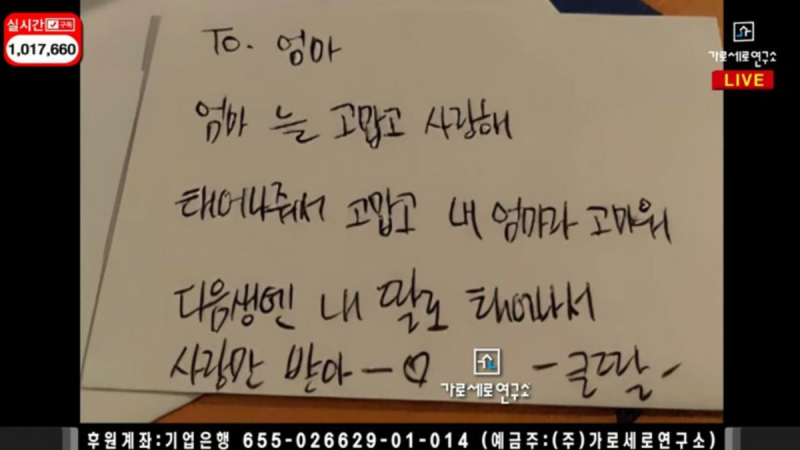 실시간 구독
1,017,660
가로세로연구소
LIVE
To. 엄마
엄마 늘 고맙고 사랑해
태어나줘서 고맙고 내 엄마라 고마워
다음생엔 내 딸로 태어나서
사랑만 받아-♡
-큰딸-
가로세로연구소
후원계좌:기업은행 655-026629-01-014 (예금주:(주)가로세로연구소)